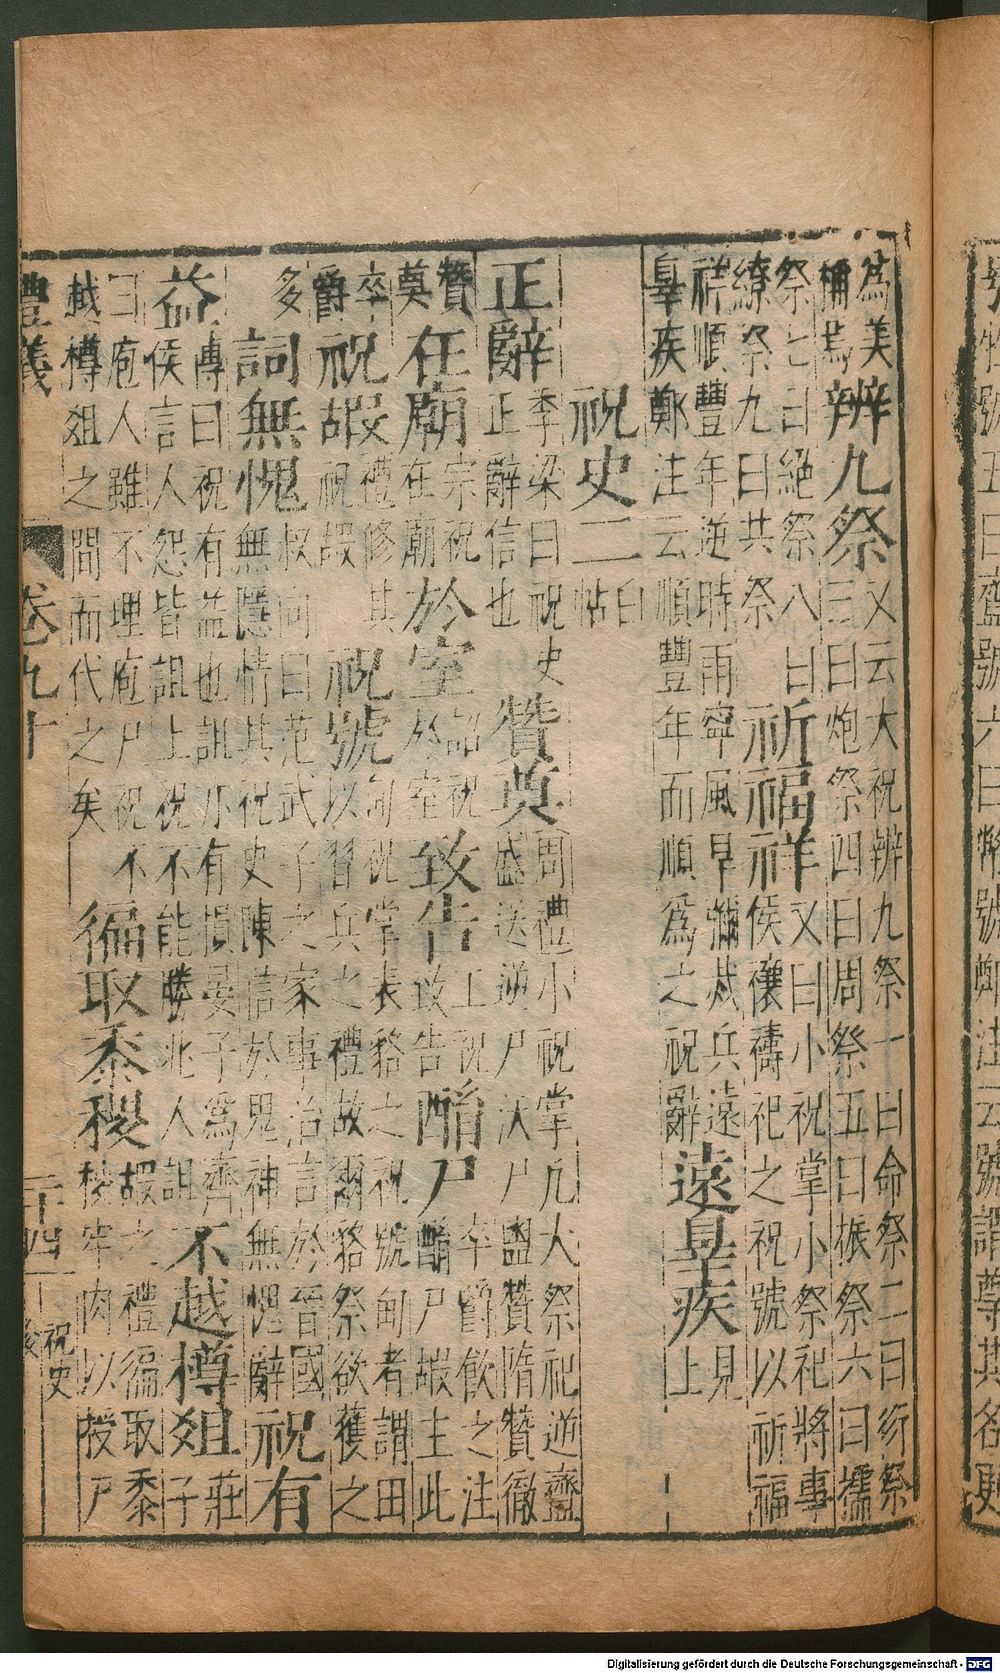 牲號五曰齍號六曰幣號鄭注云號謂尊其名
為美
稱焉
辨九祭
又云大祝辨九祭一曰命祭二曰衍祭
三曰炮祭四曰周祭五曰振祭六曰擩
祭七曰絕祭八曰
繚祭九曰共祭
祈福祥
又曰小祝掌小祭祀將事
侯禳禱祀之祝號以祈福
祥順豐年逆時雨寧風旱彌烖兵遠
辠疾鄭注云順豐年而順為之祝辭
遠辠疾
見
上
祝史二
白
帖
正辭
季梁曰祝史
正辭信也
贊奠
周禮小祝掌凡大祭祀逆齍
盛送逆尸沃尸盥贊隋贊徹
贊
奠
在廟
宗祝
在廟
於室
詔祝
於室
致告
工祝
致告
酳尸
卒爵飲之注
酳尸嘏主此
卒
爵
祝嘏
禮修其
祝嘏
祝號
甸祝掌表貉之祝號甸者謂田
以習兵之禮故爾貉祭欲獲之
多
詞無愧
叔向曰范武子之家事治言於晉國
無隱情其祝史陳信於鬼神無愧辭
祝有
益
傳曰祝有益也詛亦有損晏子為齊
侯言人怨皆詛上祝不能勝兆人詛
不越樽俎
莊
子
曰庖人雖不理庖尸祝不
越樽俎之間而代之矣
徧取黍稷
嘏之禮徧取黍
稷牢肉以授尸
禮義
卷九十
二十四
祝史
後
Digitalisierung gefördert durch die Deutsche Forschungsgemeinschaft - DFG